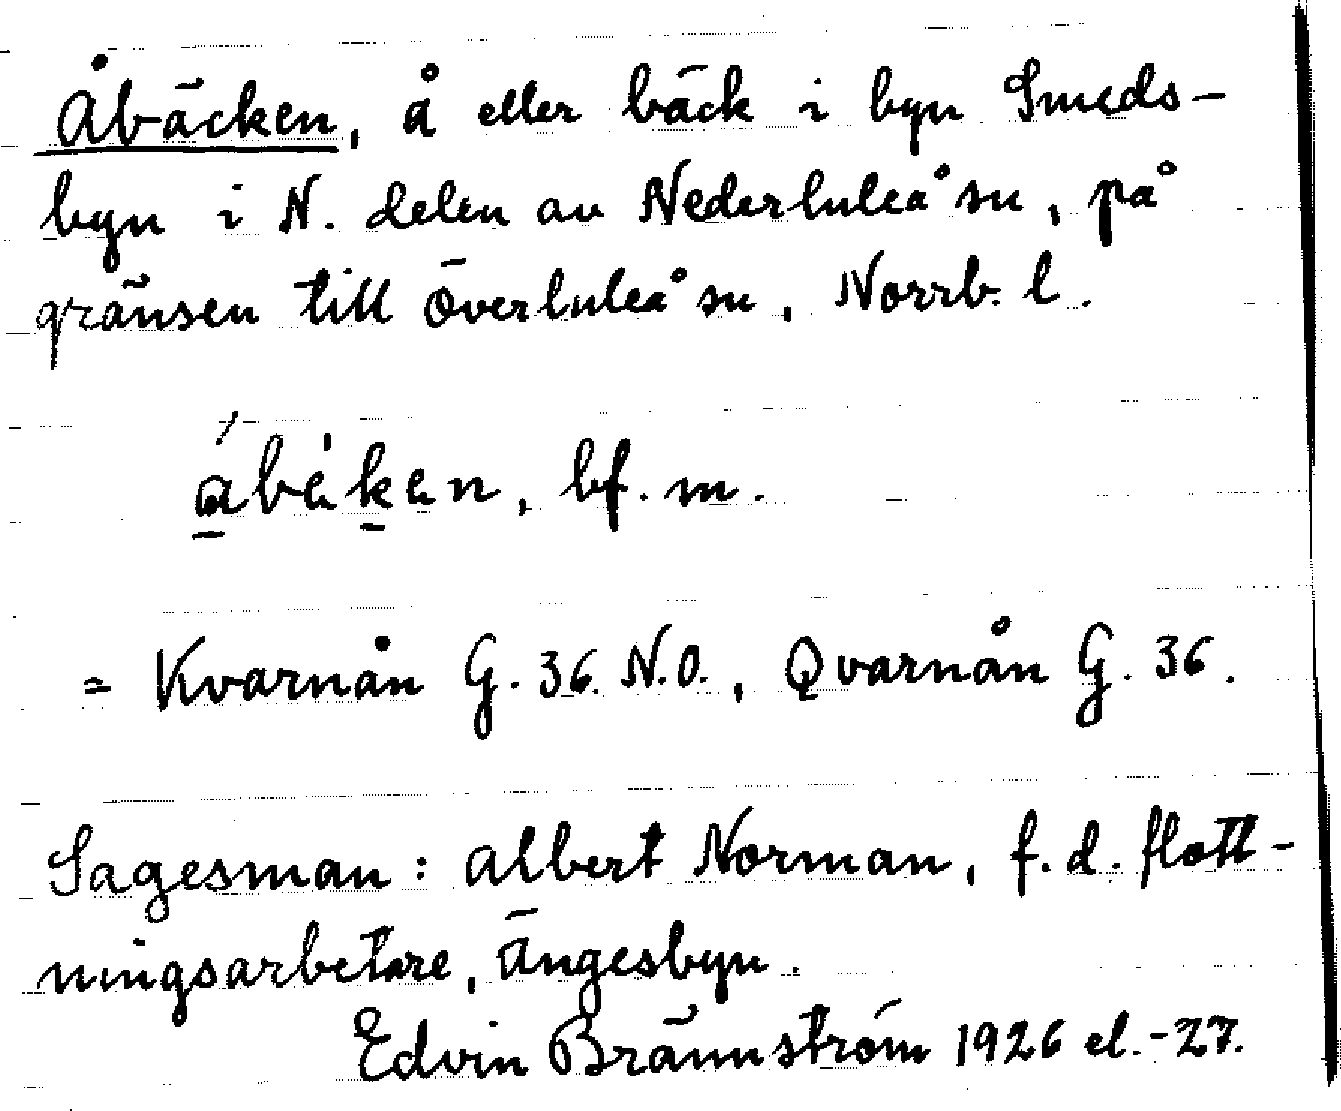 Åbäcken, å eller bäck i byn Smeds-
byn i N. delen av Nederluleå sn, på
gränsen till Överluleå sn, Norrb. l.
ábèken, bf. m.
= Kvarnån G. 36. N.O., Qvarnån G. 36.
Sagesman: Albert Norman, f.d. flott-
ningsarbetare, Ängesbyn.
Edvin Brännström 1926 el. -27.